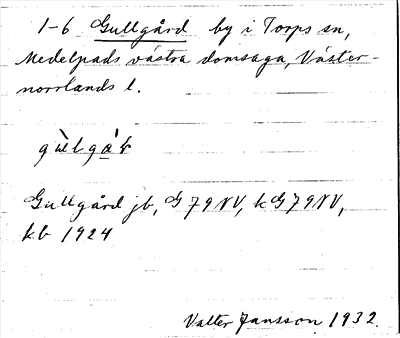 1-6 Gullgård by i Torps sn,
Medelpads västra domsaga, Väster-
norrlands l.
Gullgård jb, G 79 NV, kG 79 NV,
kb 1924
Valter Jansson 1932.